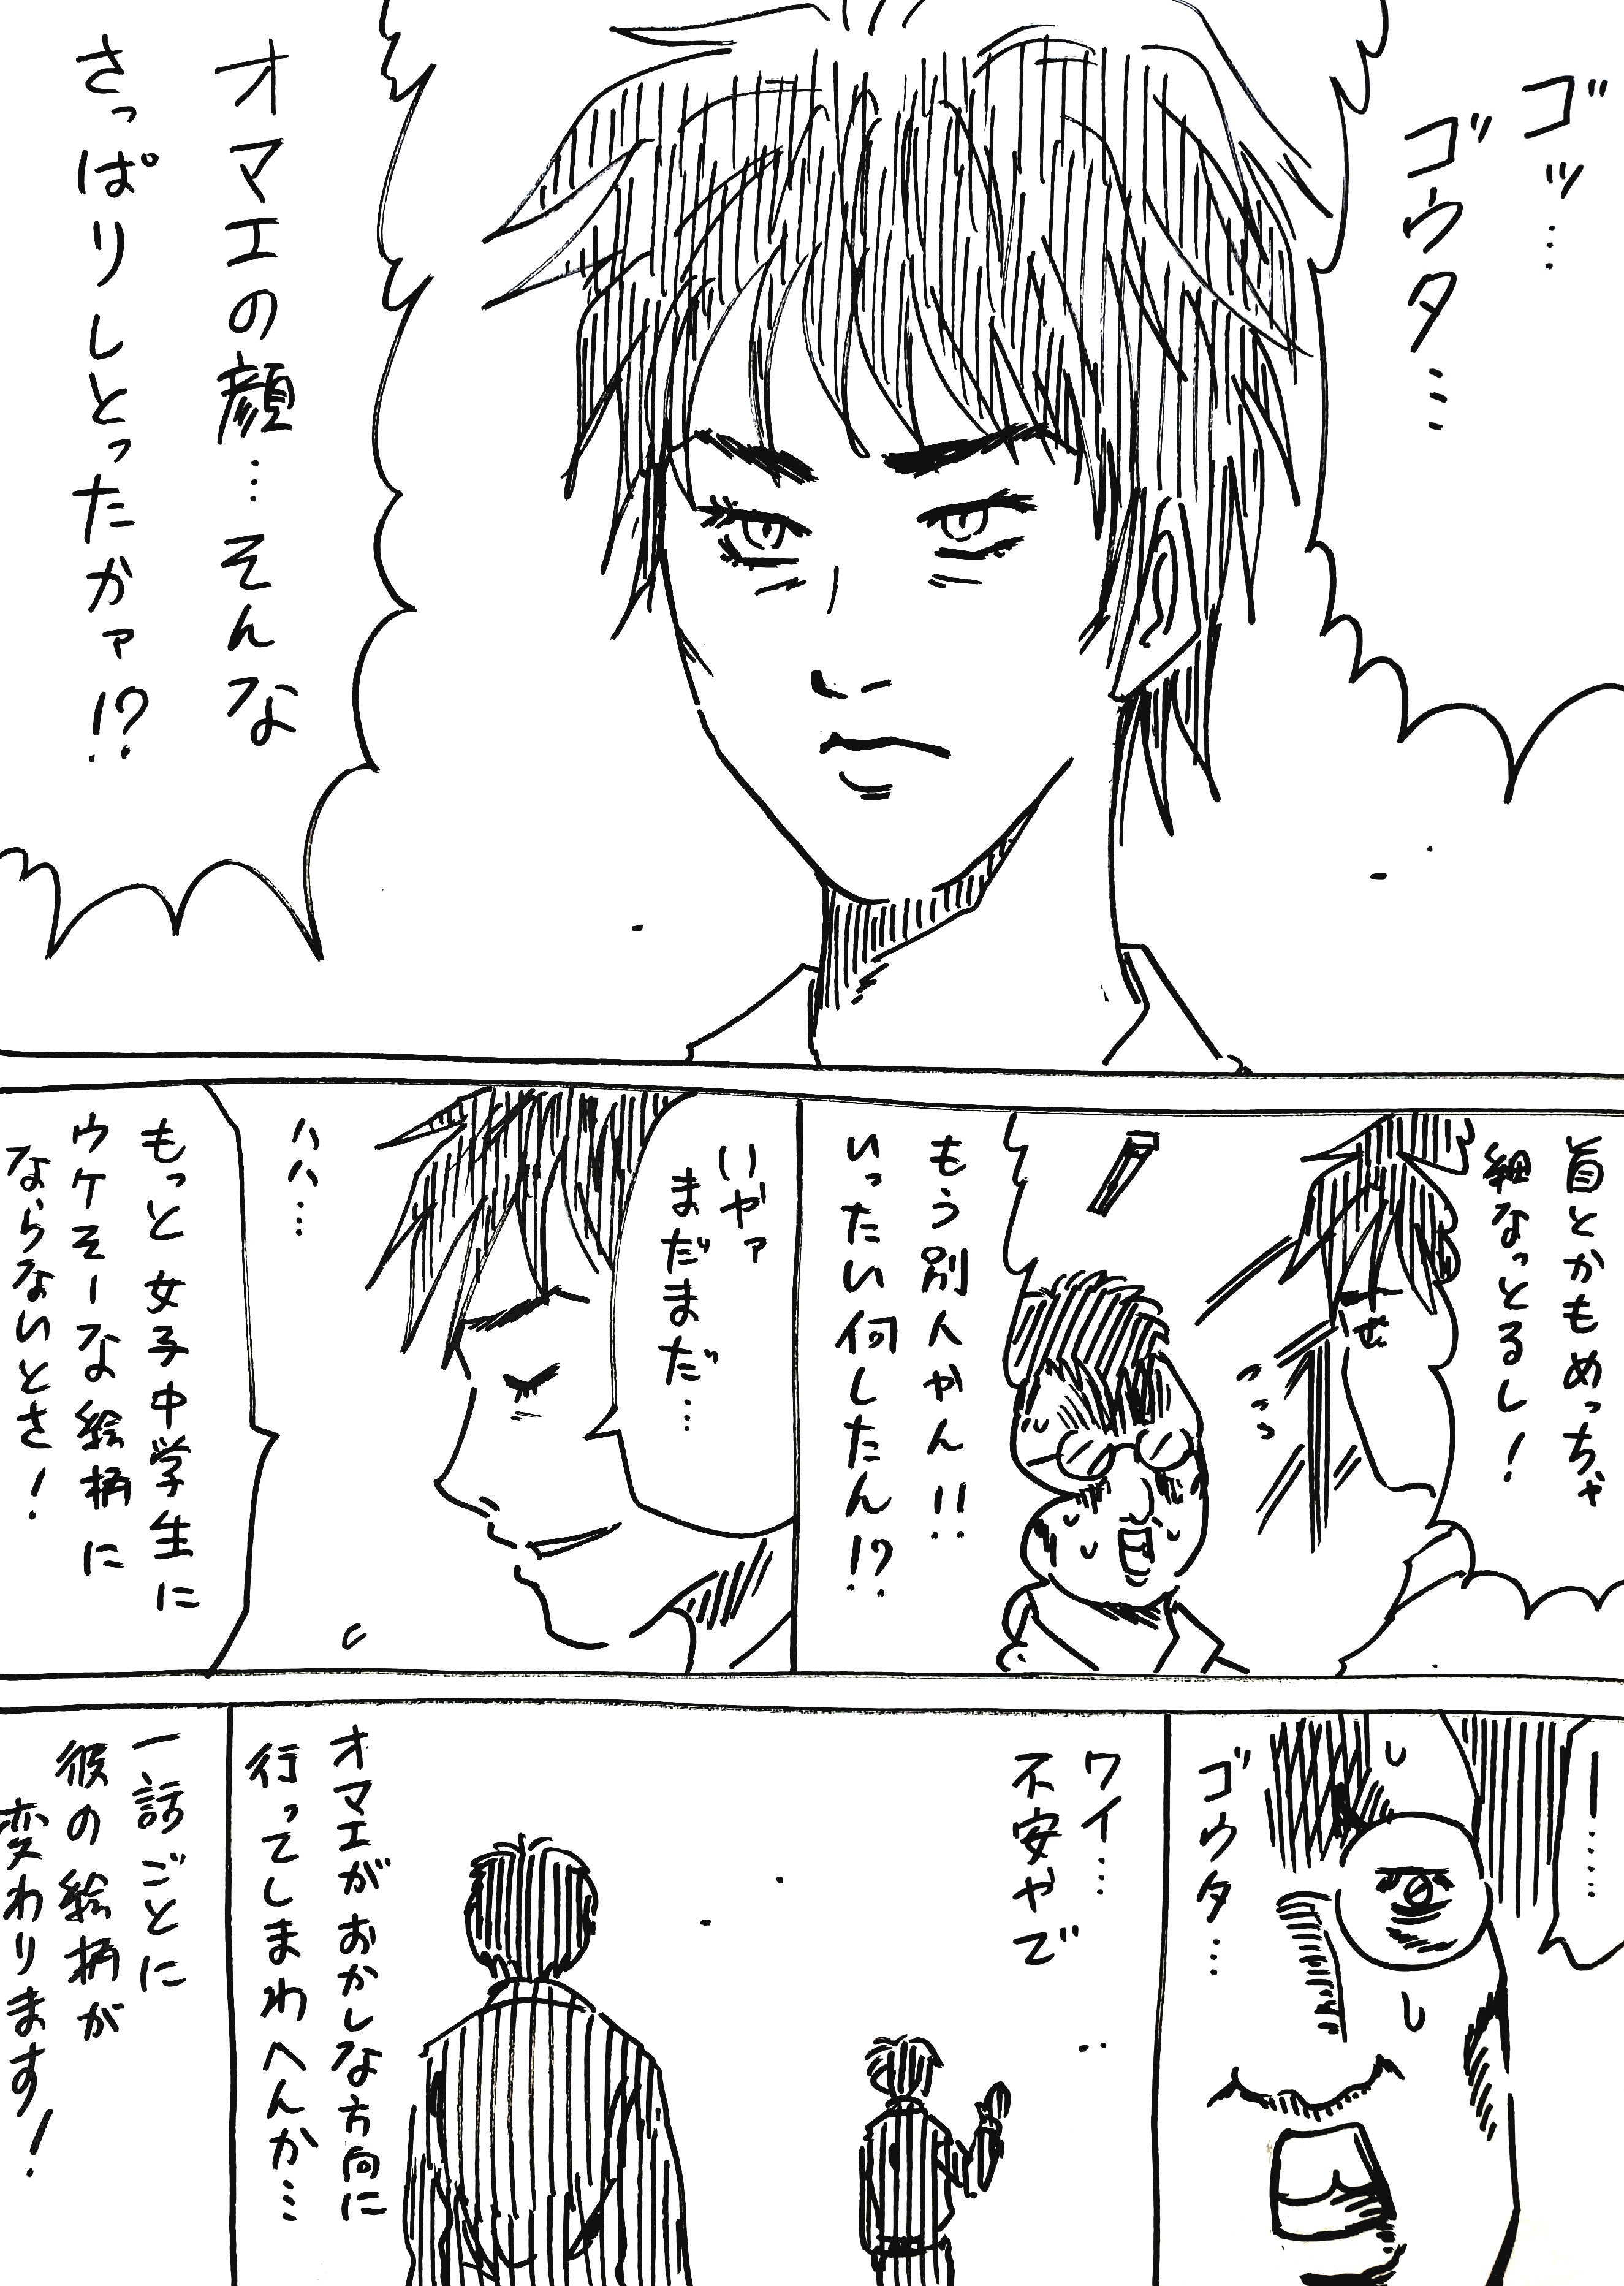 ゴッ…
ゴウタ…
オマエの顔…そんな
さっぱりしとったかァ!?
首とかもめっちゃ
細なっとるし!
もう別人やん!!
いったい何したん!?
いやァ
まだまだ…
ハハ…
もっと女子中学生に
ウケそーな絵柄に
ならないとさ!
ー……
ゴウタ…
ワイ…
不安やで
オマエがおかしな方向に
行ってしまわへんか…
一話ごとに
彼の絵柄が
変わります!